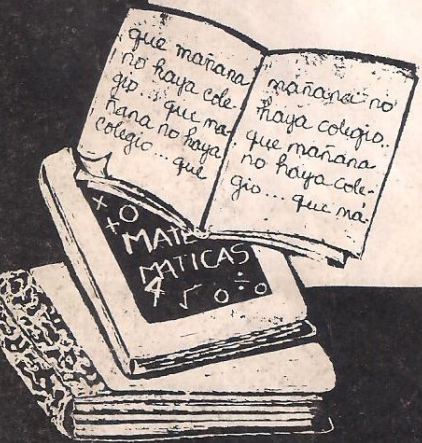 que mañana
no haya cole-
gio... que ma-
ñana no haya
colegio... que
mañana no
haya colegio..
que mañana
no haya cole-
gio... que ma-
x
+ O
MATE
MATICAS
4 √ O ÷ O